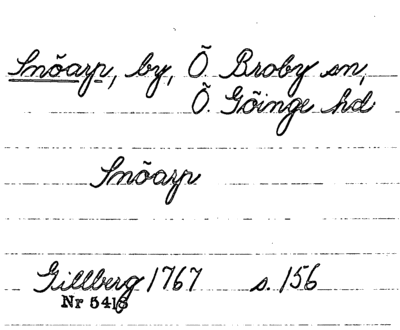 Snõarp, by, Õ. Broby sn,
Õ. Gõinge hd
Snõarp
Gillberg 1767 s. 156
Nr 5413